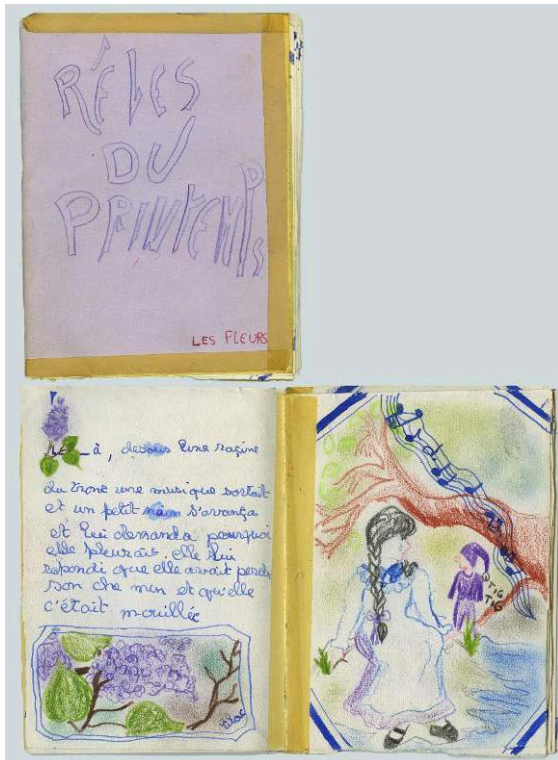 RÊVES
DU
PRINTEMPS
LES FLEURS
à, dessous une racine
du tronc une musique sortait
et un petit nain s'avança
et lui demanda pourquoi
elle pleurait, elle lui
repondi que elle avait perdu
son che min et qu'elle
c'était mouillée
TIG
TIG